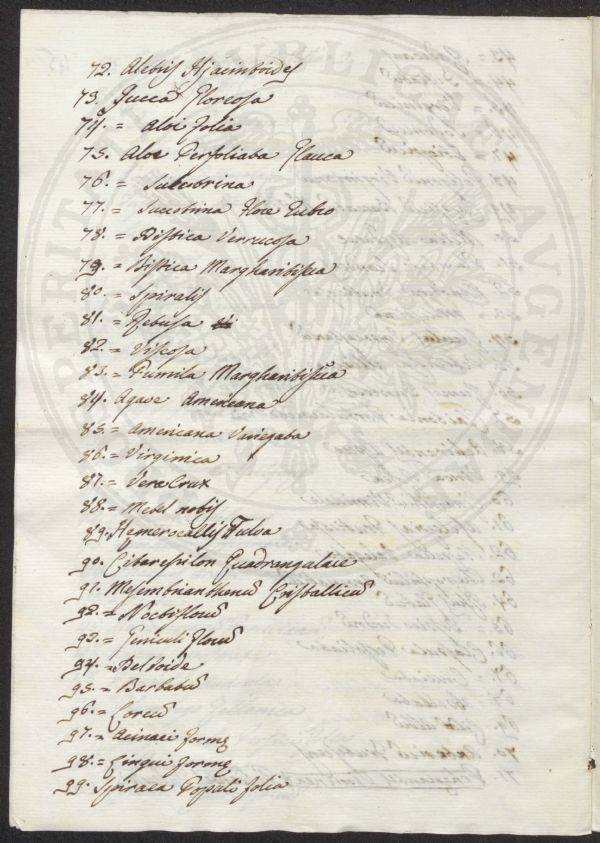 72. Aletris Hjacintoides
73. Jucca Floreosa
74. = Aloi folia
75. Aloe Perfoliata Glauca
76. = Succotrina
77. = Succotrina Flore Rubro
78. = Distica Verrucosa
79. = Distica Margharitiscia
80. = Spiralis
81. = Retusa
82. = Viscosa
83. = Pumila Margharitiscia
84. Agave Americana
85. = Americana Variegata
86. = Virginica
87. = Vera Crux
88. = Metel nobis
89. Hemerocallis Fulva
90. Quadrangulare
91. Mesembrianthenū Cristallicū
92. = Noctiflorū
93. = Geniculi Florū
94. = Deltoide
95. = Barbatū
96. = Loreū
97. = Acinaci forme
98. = Lingui forme
99. Spiraea Populi folia